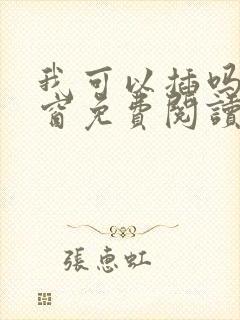 我可以插吗
窗免費閱讀
張惠虹